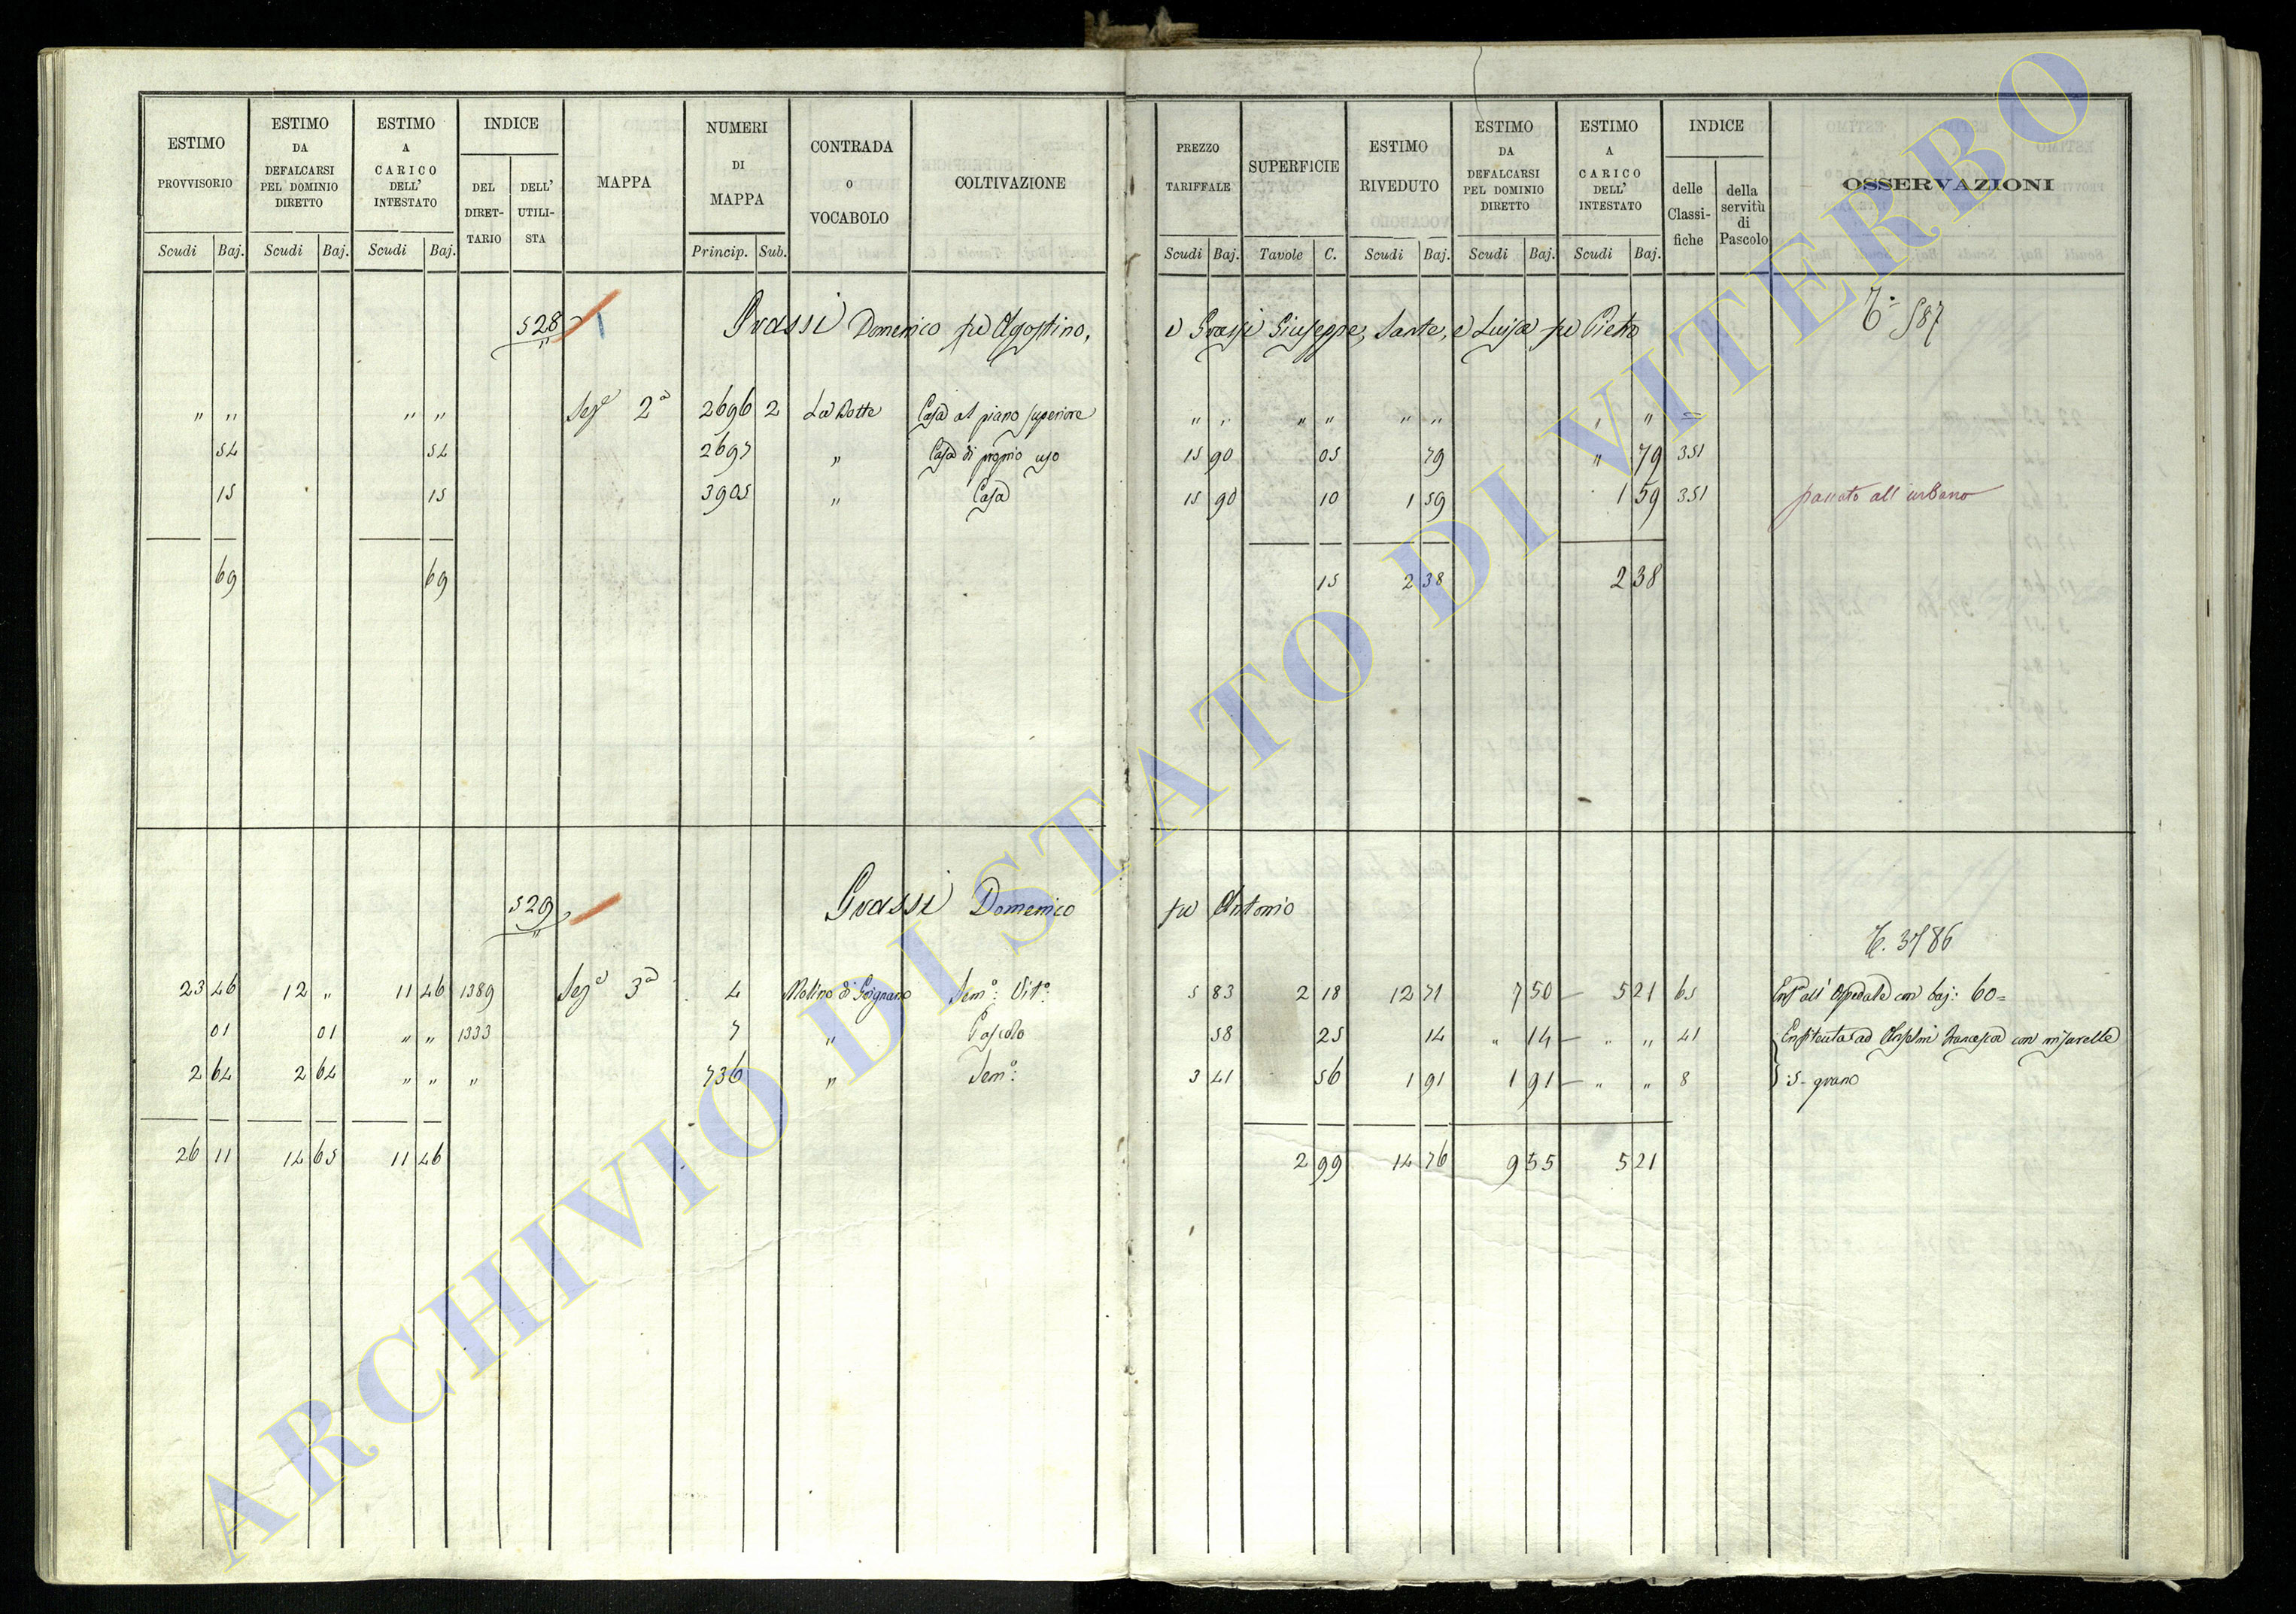 ESTIMO PROVVISORIO Scudi Baj. ESTIMO DA DEFALCARSI PEL DOMINIO DIRETTO Scudi Baj. ESTIMO A CARICO DELL' INTESTATO Scudi Baj. INDICE DEL DIRET-TARIO DELL' UTILI-STA MAPPA NUMERI DI MAPPA Princip. Sub. CONTRADA O VOCABOLO COLTIVAZIONE
PREZZO TARIFFALE Scudi Baj. SUPERFICIE Tavole C. ESTIMO RIVEDUTO Scudi Baj. ESTIMO DA DEFALCARSI PEL DOMINIO DIRETTO Scudi Baj. ESTIMO A CARICO DELL' INTESTATO Scudi Baj. INDICE delle Classi-fiche della servitù di Pascolo OSSERVAZIONI
528 Grassi Domenico fu Agostino, e Grassi Giuseppe, Sante, e Luisa fu Pietro 587
" " " " Sez.e 2a 2696 2 Casa al piano superiore " " " " " " " "
54 54 2697 " Casa di proprio uso 15 90 05 79 " 79 351
15 15 3905 " Casa 15 90 10 1 59 1 59 351 passato all'urbano
69 69 15 2 38 2 38
529 Grassi Domenico fu Antonio
3786
23 46 12 " 11 46 1389 Sez.e 3a 4 Molino di Grignano Sem.o Vit.o 5 83 2 18 12 71 7 50 5 21 65 Enf.a all'Ospedale con baj: 60=
01 01 " " 1333 7 " Pascolo 58 25 14 " 14 " " 41 Enfiteuta ad Anselmi Francesco con misurelle
2 64 2 64 " " " 736 " Sem.o 3 41 56 1 91 1 91 " " 8 5 grano
26 11 14 65 11 46 2 99 14 76 9 55 5 21
ARCHIVIO DI STATO DI VITERBO